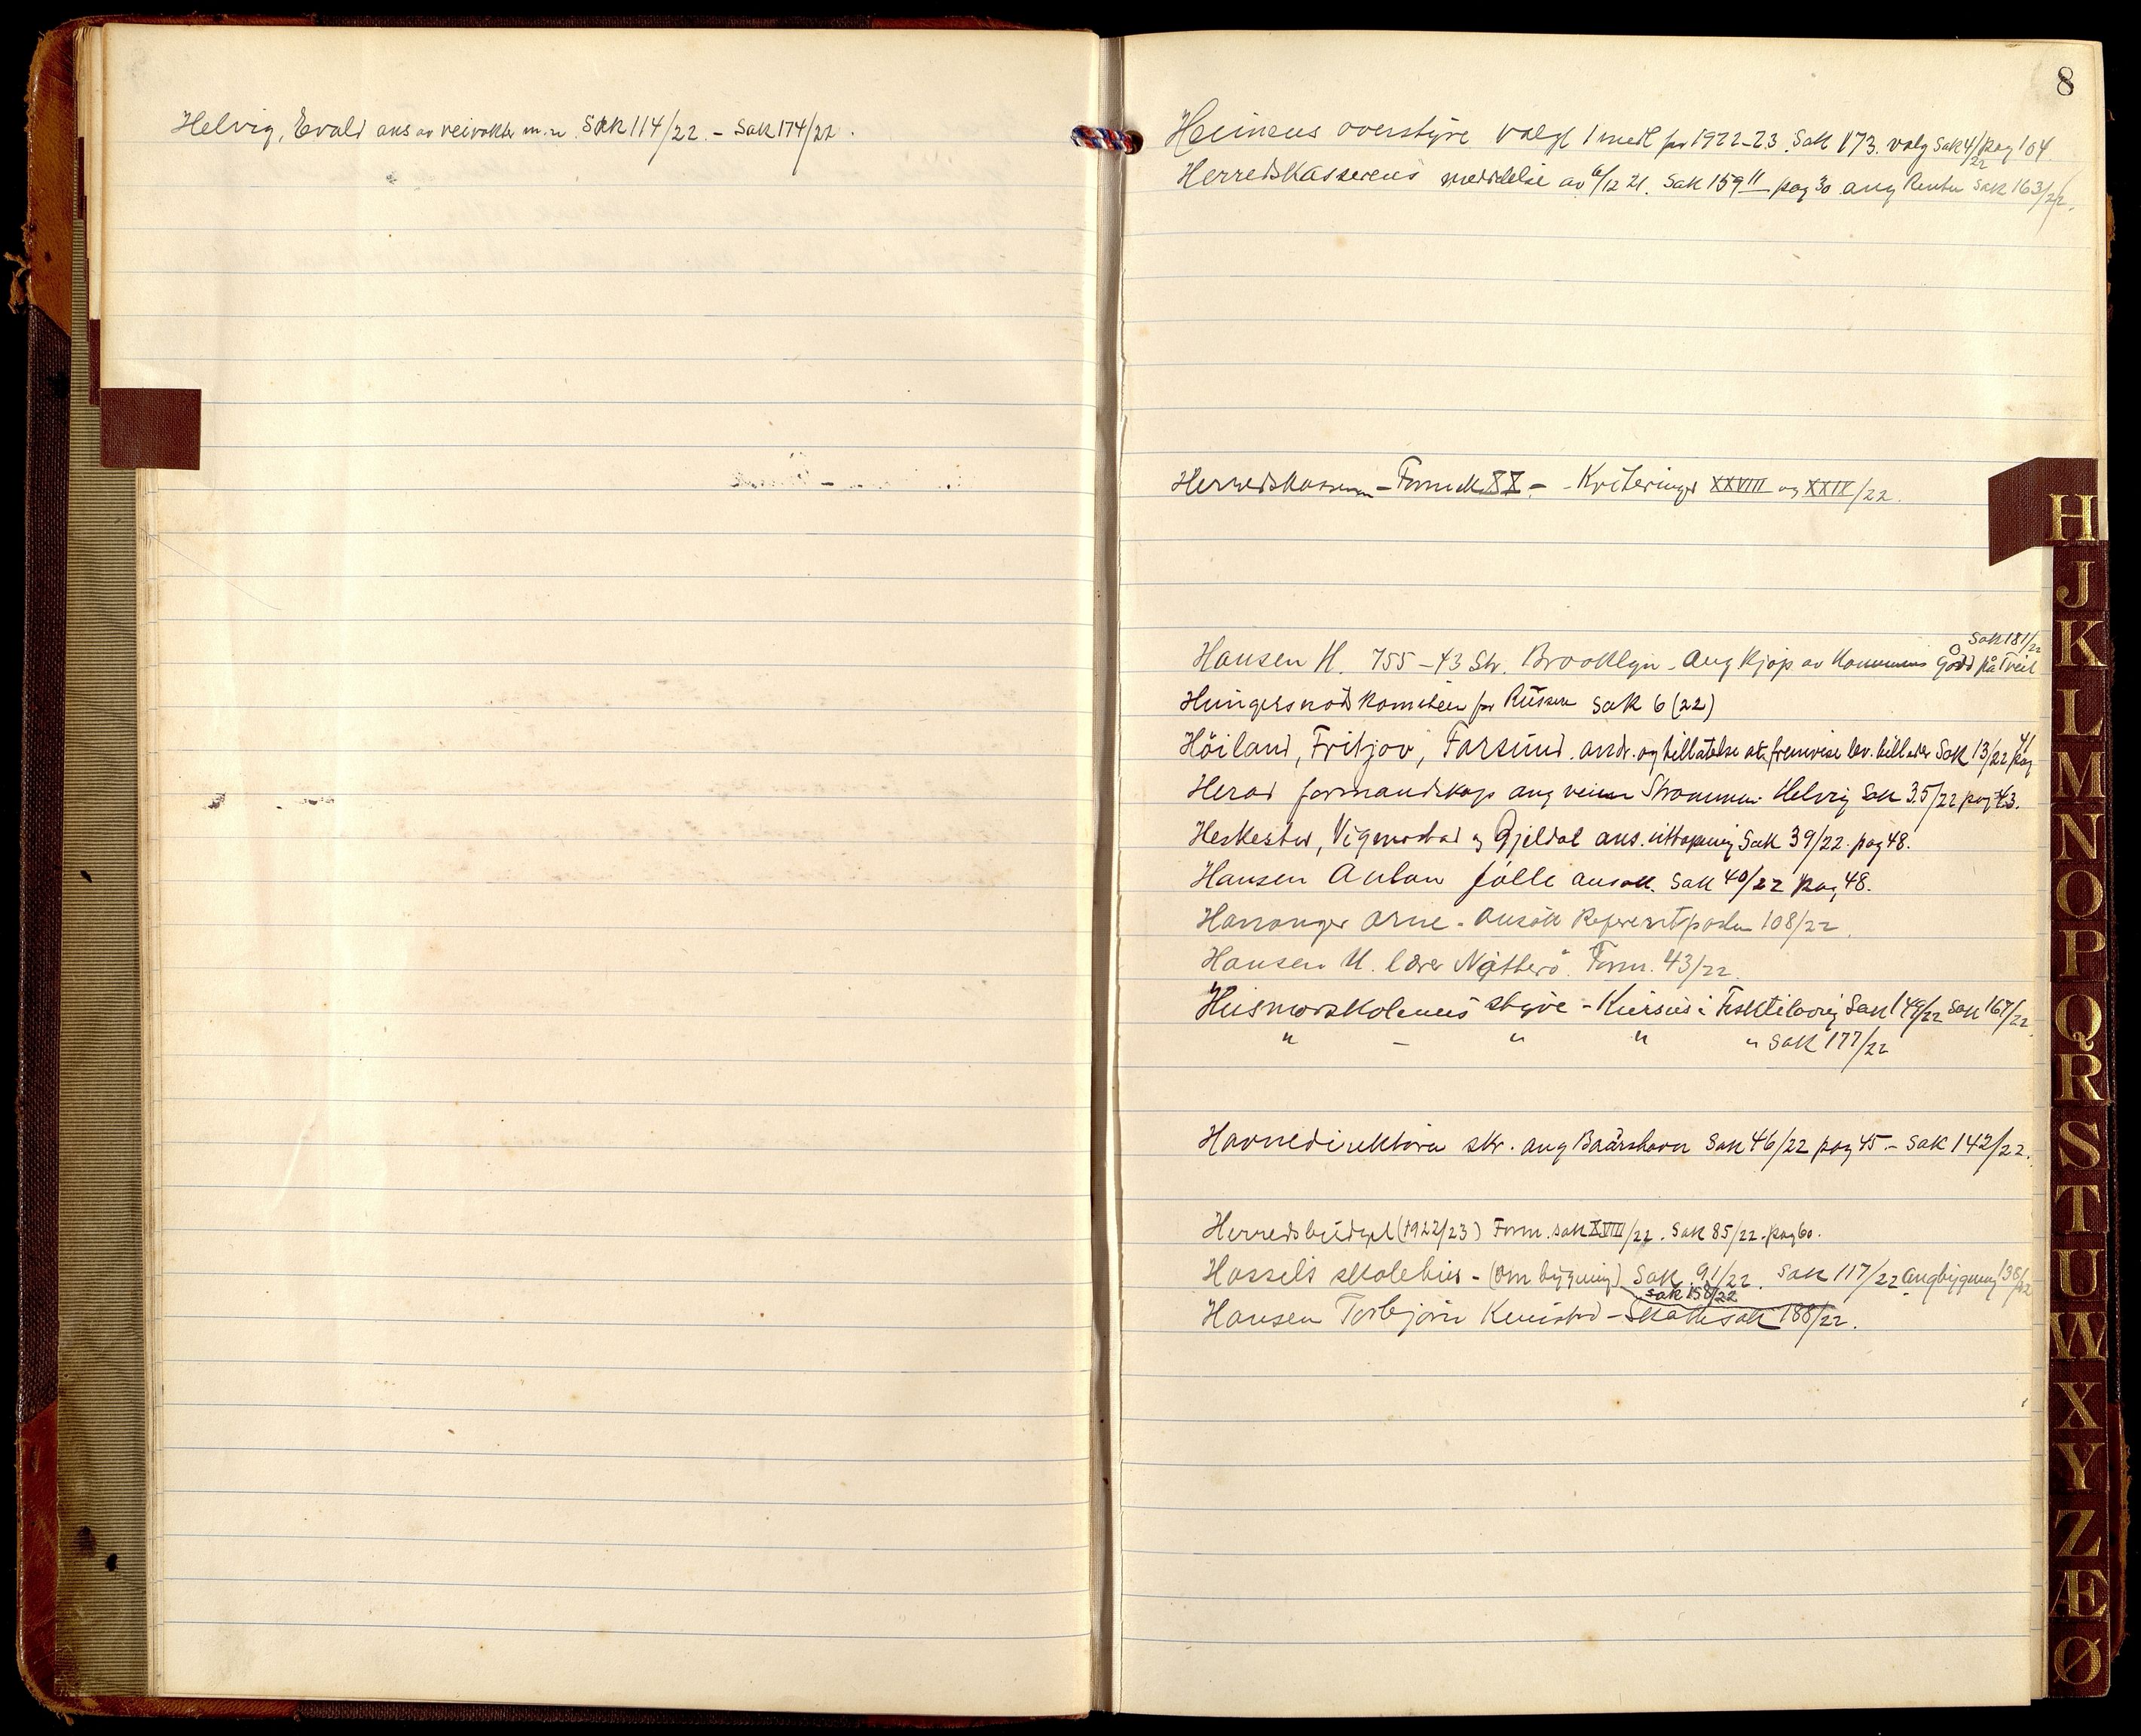 Helvig, Evald ans av veivokter m.v. Sak 114/22. - Sak 174/22.
8
Heimens overstyre valgt 1 medl for 1922-23. Sak 173. valg Sak 4/22 pag 104
Herredskasserens meddelelse av 6/12 21. Sak 159 11 pag 30 ang Renter Sak 163/22.
Herredskasseren - Form sak XX. - Kviteringer XXVIII og XXIX/22.
Sak 181/22
Hansen H. 755 - 43 Str. Brooklyn. Ang kjøp av Kommunens Gård på Tveit
Hungersnöds komiteen for Russere Sak 6 (22)
Höiland, Fritjov, Farsund. andr. og tillatelse at fremvise lev. billeder Sak 13/22 pag 41
Herad formandskap ang veien Strommen Helvig Sak 35/22 pag 43.
Heskestad, Vigmostad og Gjeldal ans. Sak 39/22. pag 48.
Hansen Anton jölle ansök. Sak 40/22 pag 48.
Arne - Ansök 108/22.
Hansen H. lærer Nötterö. Form. 43/22.
Husmorskolenes styre - Kursus i Sak 149/22 Sak 167/22
" - " " " Sak 177/22
Havnedirektören skr. ang Baärshavn Sak 46/22 pag 45 - Sak 142/22.
Herredsbudget (1922/23) Form. sak XVIII/22. Sak 85/22. pag 60.
Hassels skolehus - (Om bygning) Sak 91/22. Sak 117/22 Ang bygning 138/22
Sak 158/22
Hansen Torbjörn - Skattesak 188/22.
H
J
K
L
M
N
O
P
Q
R
S
T
U
W
X
Y
Z
Æ
Ø